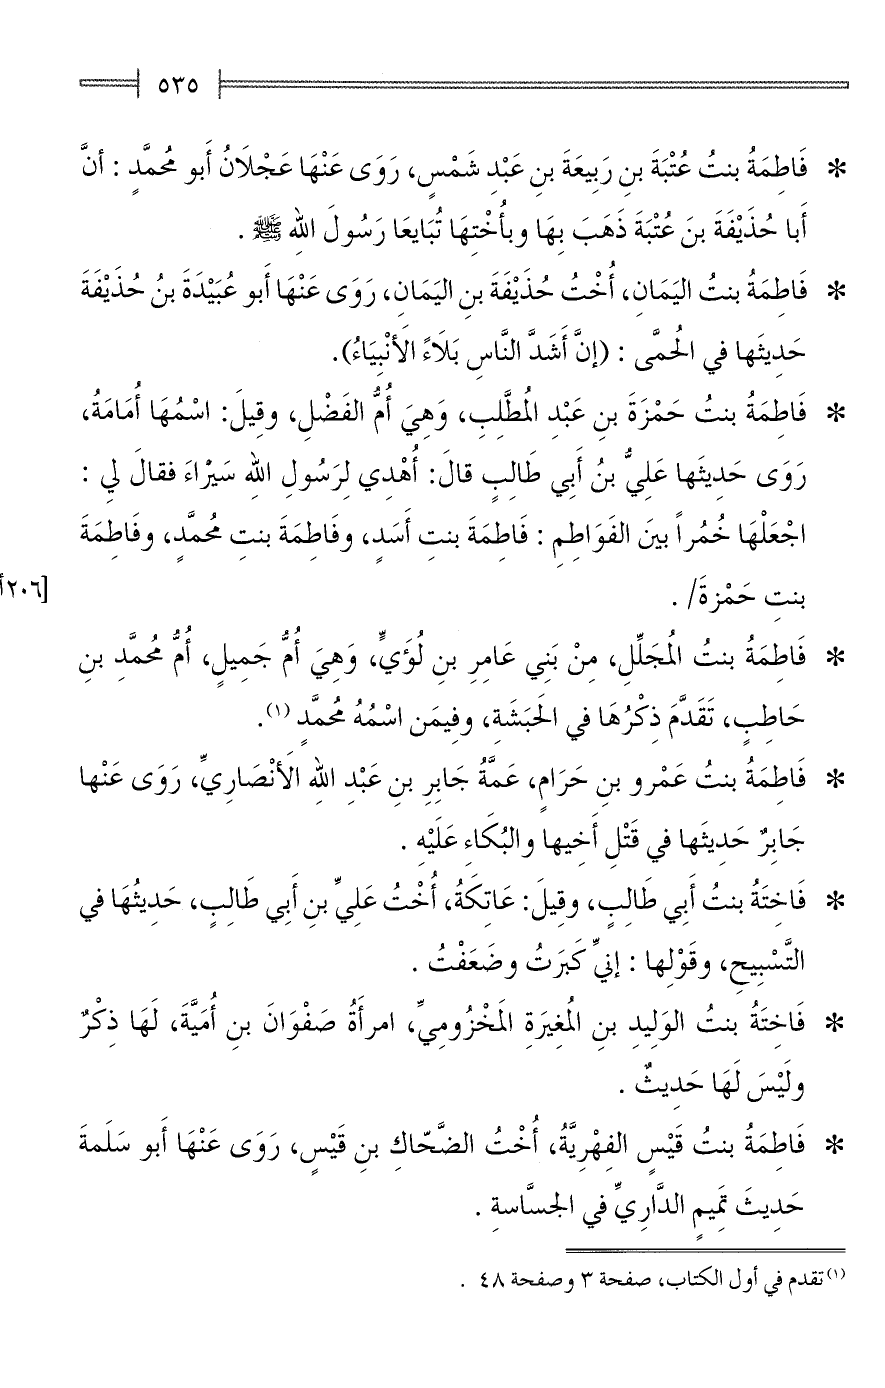 ٥٣٥
* فَاطِمَةُ بنتُ عُتْبَةَ بنِ رَبِيعَةَ بنِ عَبْدِ شَمْسٍ، رَوَى عَنْهَا عَجْلَانُ أَبو مُحمَّدٍ : أنَّ
أَبا حُذَيْفَةَ بنَ عُتْبَةَ ذَهَبَ بِهَا وبأُخْتِهَا تُبَايعَا رَسُولَ اللهِ ﷺ .
* فَاطِمَةُ بنتُ اليَمَانِ، أُخْتُ حُذَيْفَةَ بنِ اليَمَانِ، رَوَى عَنْهَا أَبو عُبَيْدَةَ بنُ حُذَيْفَةَ
حَدِيثَها في الحُمَّى : (إنَّ أَشَدَّ النَّاسِ بَلَاءً الأَنْبِيَاءُ).
* فَاطِمَةُ بنتُ حَمْزَةَ بنِ عَبْدِ المُطَّلِبِ، وَهِيَ أُمُّ الفَضْلِ، وقِيلَ: اسْمُهَا أُمَامَةُ،
رَوَى حَدِيثَها عَلِيُّ بنُ أَبي طَالِبٍ قالَ: أُهْدِي لِرَسُولِ اللهِ سَيْرَاءَ فقالَ لي :
اجْعَلْهَا خُمُراً بينَ الفَوَاطِمِ : فَاطِمَةَ بنتِ أَسَدٍ، وفَاطِمَةَ بنتِ مُحمَّدٍ، وفَاطِمَةَ
بنتِ حَمْزةَ/ .
[٢٠٦أ
* فَاطِمَةُ بنتُ المُجَلِّلِ، مِنْ بَنِي عَامِرِ بنِ لُؤَيٍّ، وَهِيَ أُمُّ جَمِيلٍ، أُمُّ مُحمَّدِ بنِ
حَاطِبٍ، تَقَدَّمَ ذِكْرُهَا في الحَبَشَةِ، وفِيمَن اسْمُهُ مُحمَّدٍ (١).
* فَاطِمَةُ بنتُ عَمْرو بنِ حَرَامٍ، عَمَّةُ جَابِرِ بنِ عَبْدِ اللهِ الأَنْصَارِيِّ، رَوَى عَنْها
جَابِرٌ حَدِيثَها في قَتْلِ أَخِيها والبُكَاءِ عَلَيْهِ .
* فَاخِتَةُ بنتُ أَبي طَالِبٍ، وقِيلَ: عَاتِكَةُ، أُخْتُ عَلِيِّ بنِ أَبي طَالِبٍ، حَدِيثُهَا في
التَّسْبِيحِ، وقَوْلِها : إنيِّ كَبَرَتُ وضَعَفْتُ .
* فَاخِتَةُ بنتُ الوَلِيدِ بنِ المُغيَرَةِ المَخْزُومِيِّ، امرأَةُ صَفْوَانَ بنِ أُمَيَّةَ، لَهَا ذِكْرٌ
ولَيْسَ لَهَا حَدِيثٌ .
* فَاطِمَةُ بنتُ قَيْسٍ الفِهْرِيَّةُ، أُخْتُ الضَّحّاكِ بنِ قَيْسٍ، رَوَى عَنْهَا أَبو سَلَمةَ
حَدِيثَ تَمِيمٍ الدَّارِيِّ في الجسَّاسةِ .
(١) تقدم في أول الكتاب، صفحة ٣ وصفحة ٤٨ .